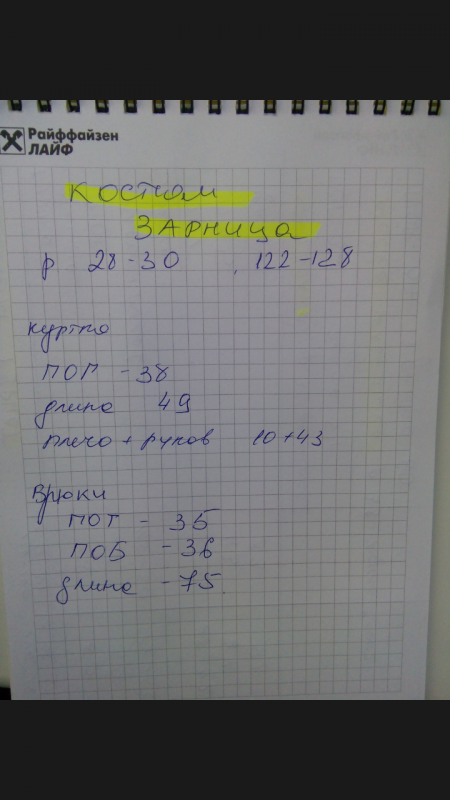 Райффайзен
ЛАЙФ
Костюм
Зарница
р 28-30 122-128
куртка
ПОГ - 38
длина 49
плечо + рукав 10+43
Брюки
ПОТ - 35
ПОБ - 36
длина - 75